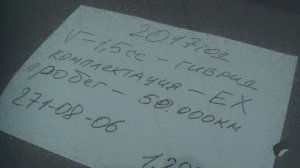 2017год
V-1,5сс - гибрид
комплектация - EX
пробег - 50.000км
271-08-06